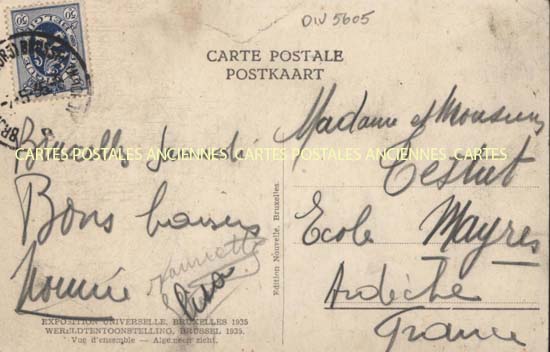 DIV 5605
CARTE POSTALE
POSTKAART
Bruxelles Jeudi
Bons baisers
Madame et Monsieur
Testut
Ecole Mayres
Ardèche
France
CARTES POSTALES ANCIENNES CARTES POSTALES ANCIENNES CARTES
Edition Nouvelle, Bruxelles.
EXPOSITION UNIVERSELLE, BRUXELLES 1935
WERELDTENTOONSTELLING, BRUSSEL 1935.
Vue d'ensemble — Algemeen zicht.